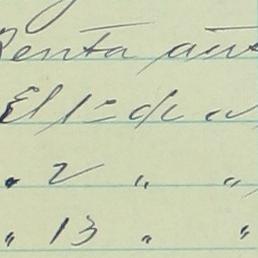 Renta
El 1º de
" 2 " "
" 13 " "